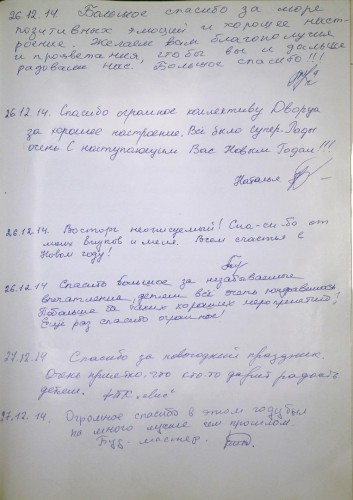 26.12.14. Большое спасибо за море
позитивных эмоций и хорошее наст-
роение. Желаем вам благополучия
и процветания, чтобы вы и дальше
радовали нас. Большое спасибо!!!
26.12.14. Спасибо огромное коллективу Дворца
за хорошее настроение. Всё было супер. Рады
очень С наступающим Вас Новым Годом!!!
Наталья
26.12.14. Восторг неописуемый! Спа-си-бо от
моих внуков и меня. Всем счастья в
Новом году!
26.12.14 Спасибо большое за незабываемые
впечатления, детям всё очень понравилось
Побольше бы таких хороших мероприятий!
Ещё раз спасибо огромное!
27.12.14 Спасибо за новогодний праздник.
Очень приятно, что кто-то дарит радость
детям.
27.12.14. Огромное спасибо в этом году был
на много лучше чем прошлом
Буд-мастер.